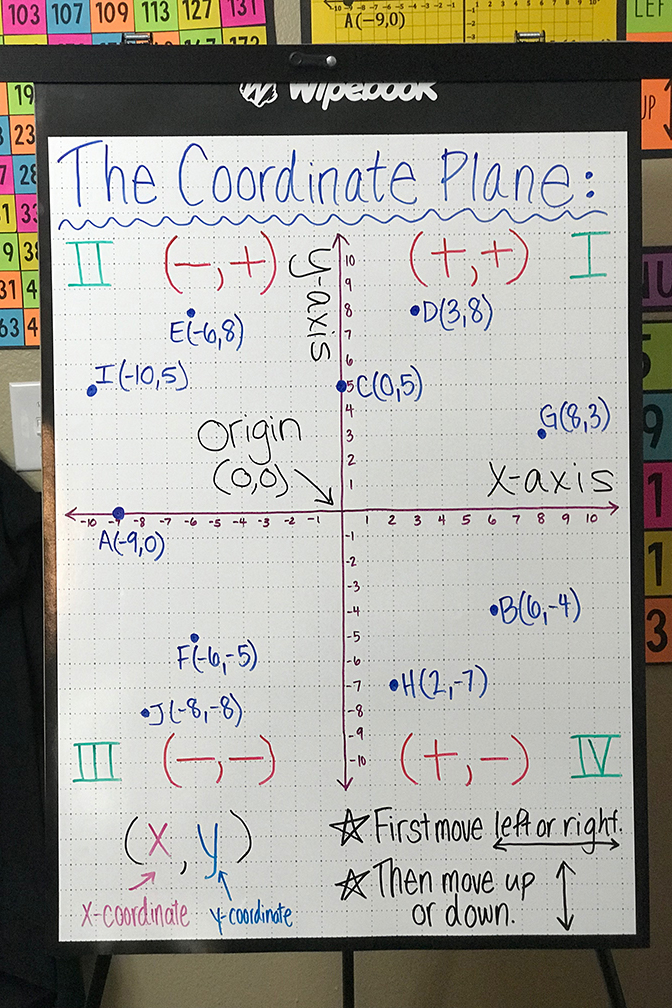 103 107 109 113 127 131
A(-9,0)
LEF
UP
19
23
Wipebook
The Coordinate Plane:
II (−,+) y-axis (+,+) I
E(-6,8)
D(3,8)
I(-10,5)
C(0,5)
G(8,3)
Origin
(0,0)
x-axis
10
9
8
7
6
5
4
3
2
1
-10 -9 -8 -7 -6 -5 -4 -3 -2 -1 1 2 3 4 5 6 7 8 9 10
-1
-2
-3
-4
-5
-6
-7
-8
-9
-10
A(-9,0)
B(6,-4)
F(-6,-5)
H(2,-7)
J(-8,-8)
III (−,−) (+,−) IV
(x, y)
x-coordinate y-coordinate
First move left or right.
Then move up
or down.